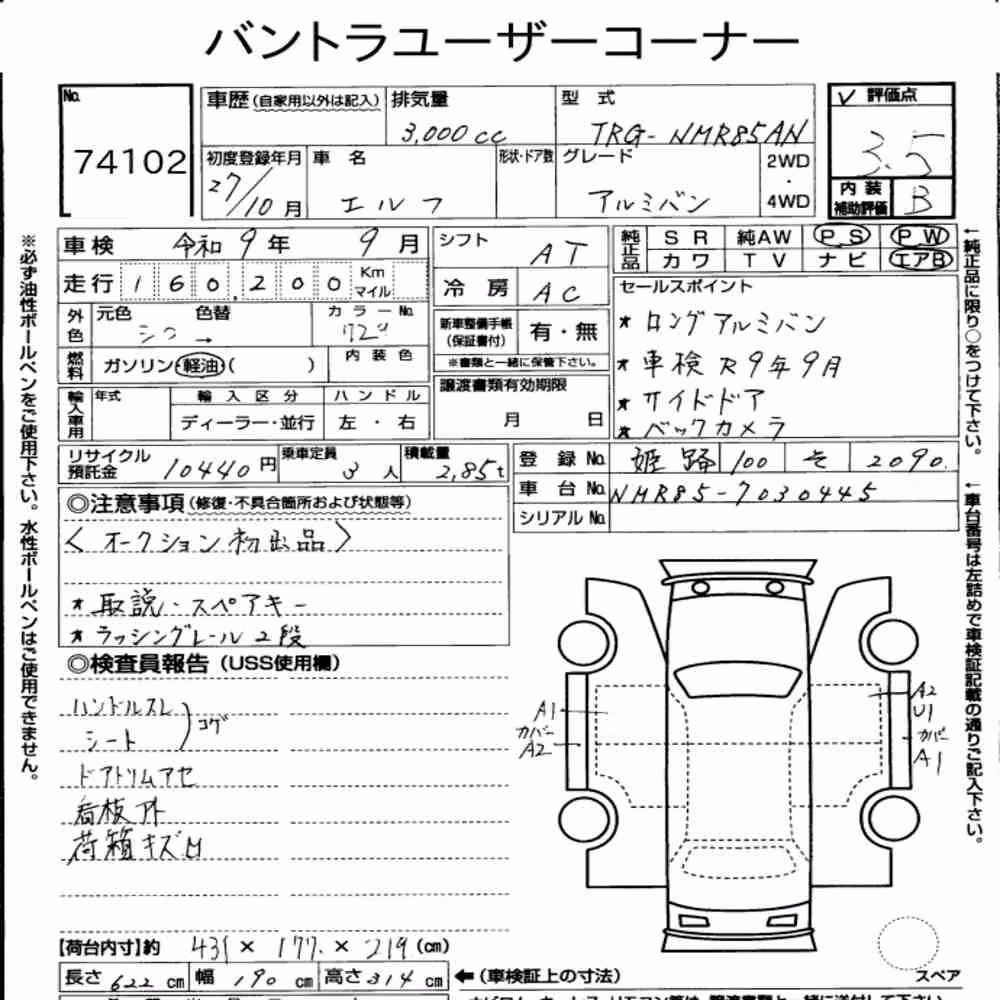 バントラユーザーコーナー
No. 74102
車歴(自家用以外は記入) 排気量 3,000cc 型式 TRG-NMR85AN
✓ 評価点 3.5
初度登録年月 27/10月 車名 エルフ 形状・ドア数 グレード アルミバン 2WD・4WD
内装補助評価 B
※必ず油性ボールペンをご使用下さい。水性ボールペンはご使用できません。
車検 令和9年9月 シフト AT
純正品 SR 純AW PS PW
カワ TV ナビ エアB
走行 160,200 Km マイル 冷房 AC
セールスポイント
外色 元色 シロ 色替 → カラーNo.
新車整備手帳(保証書付) 有・無
※書類と一緒に保管下さい。
★ロングアルミバン
★車検R9年9月
★サイドドア
★バックカメラ
燃料 ガソリン・軽油( ) 内装色
輸入車用 年式 輸入区分 ディーラー・並行 ハンドル 左・右
譲渡書類有効期限 月 日
リサイクル預託金 10440円 乗車定員 3人 積載量 2,85t
登録No. 姫路 100 そ 2090
車台No. NMR85-7030445
シリアルNo.
←純正品に限り○をつけて下さい。
←車台番号は左詰めで車検証記載の通りご記入下さい。
◎注意事項(修復・不具合箇所および状態等)
〈オークション初出品〉
★取説・スペアキー
★ラッシングレール2段
◎検査員報告(USS使用欄)
ハンドルスレ
シート
コゲ
ドアトリムアセ
看板外
荷箱キズ凹
A1
カバー
A2
A2
U1
カバー
A1
【荷台内寸】約 431×177×219(cm)
長さ622cm 幅190cm 高さ314cm ←(車検証上の寸法)
スペア